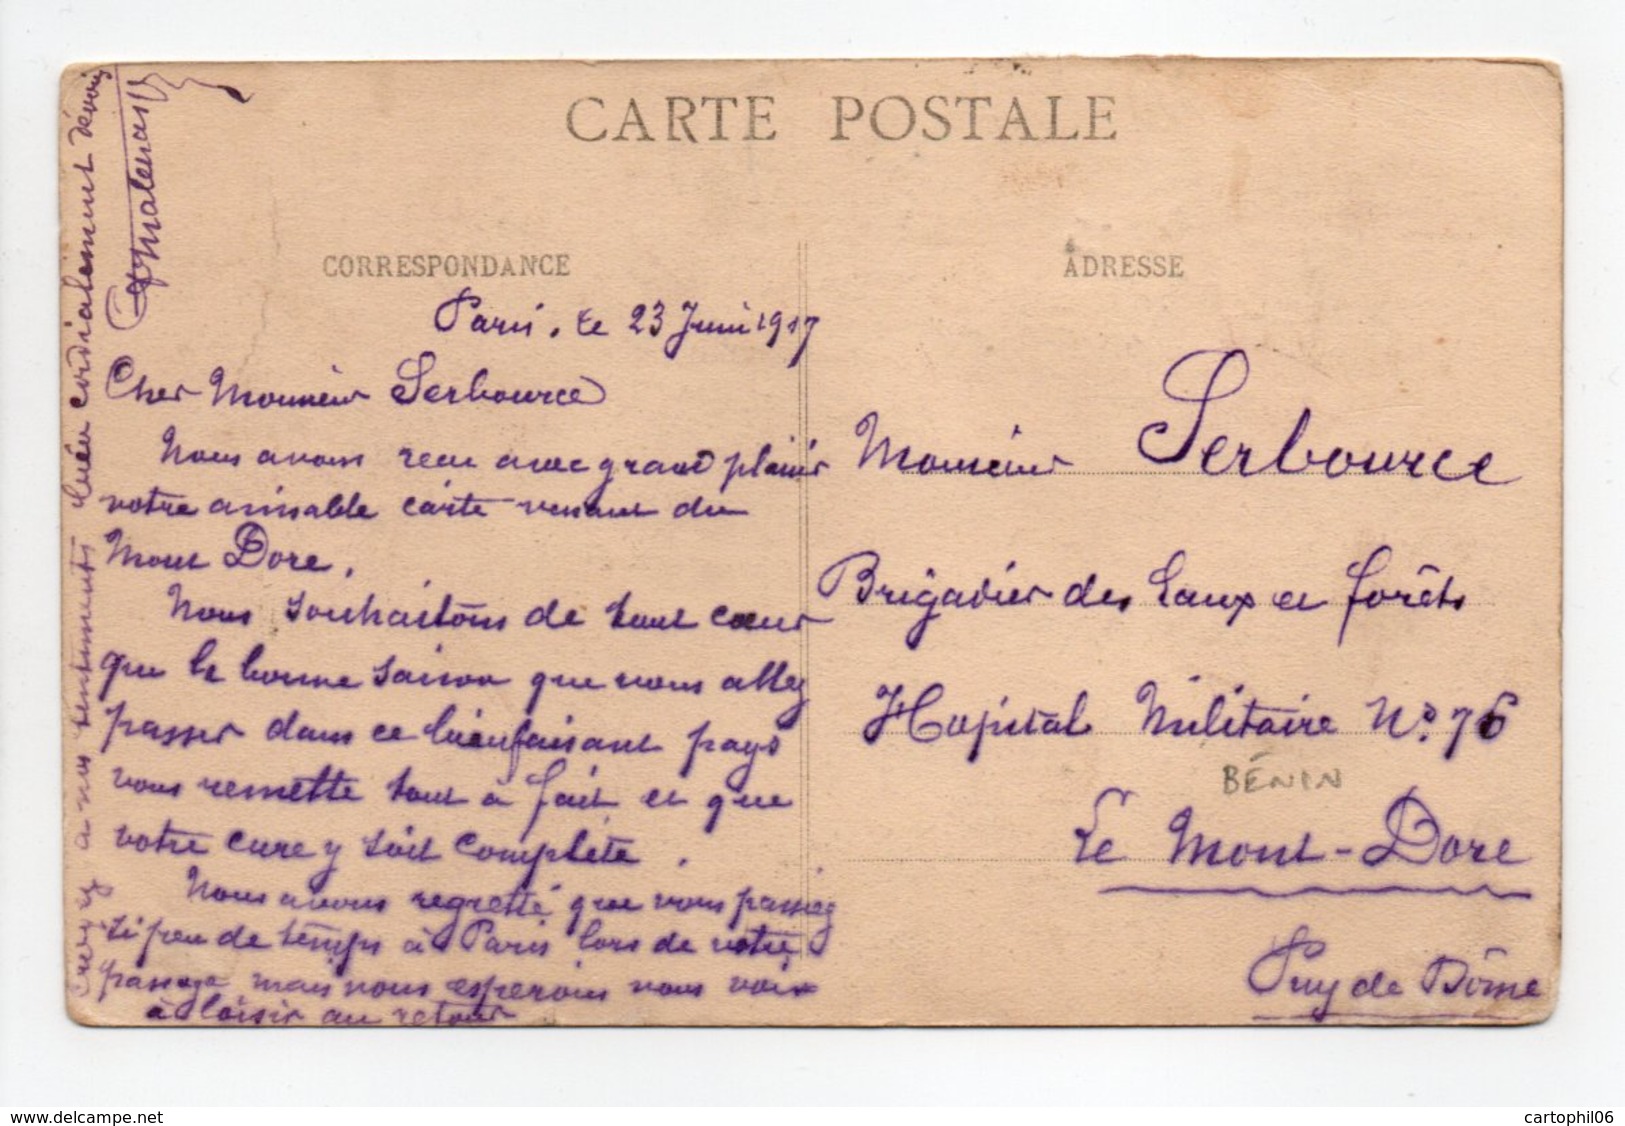 CARTE POSTALE
CORRESPONDANCE
ADRESSE
Paris, le 23 Juin 1917
Cher Monsieur Serbource
Nous avons reçu avec grand plaisir
votre aimable carte venant du
Mont Dore.
Nous souhaitons de tout cœur
que la bonne saison que vous allez
passer dans ce bienfaisant pays
vous remette tout à fait et que
votre cure y soit complète.
Nous avons regretté que vous passiez
si peu de temps à Paris lors de votre
passage mais nous espérons vous voir
à loisir au retour
Croyez à nos sentiments bien cordialement dévoués
Monsieur Serbource
Brigadier des Eaux et forêts
Hopital Militaire No. 76
BÉNIN
Le Mont-Dore
Puy de Dôme
www.delcampe.net
cartophil06